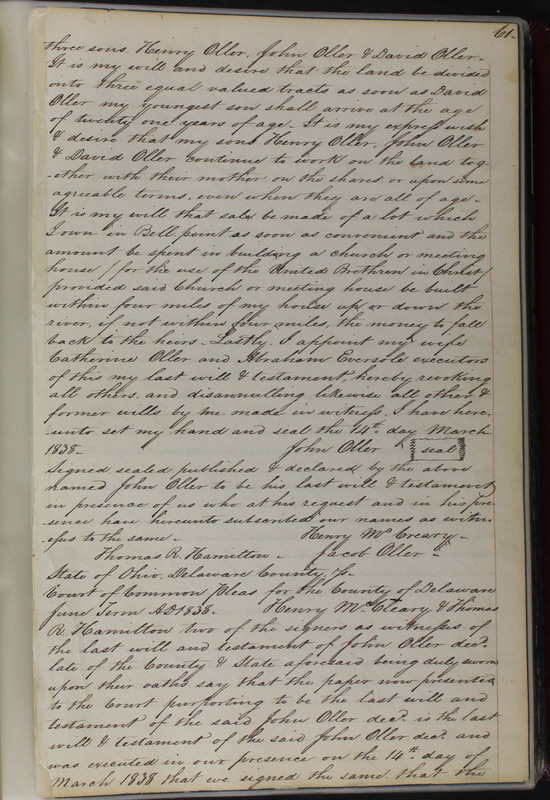 61.
three sons. Henry Oller, John Oller & David Oller.
It is my will and desire that the land be divided
onto three equal valued tracts as soon as David
Oller my youngest son shall arrive at the age
of twenty one years of age. It is my express wish
& desire that my sons Henry Oller, John Oller
& David Oller continue to work on the land tog-
-ether with their mother on the shares or upon some
agreable terms, even when they are all of age.
It is my will that sale be made of a lot which
I own in Bell point as soon as convenient and the
amount be spent in building a church or meeting
house / for the use of the United Brethren in Christ /
provided said Church or meeting house be built
within four miles of my house up or down the
river, if not within four miles, the money to fall
back to the heirs. Lastly. I appoint my wife
Catherine Oller and Abraham Eversole executors
of this my last will & testament, hereby revoking
all others, and disannulling likewise all other &
former wills by me made in witness, I have here-
-unto set my hand and seal the 14th day March
1838. John Oller seal
Signed sealed published & declared by the above
named John Oller to be his last will & testament
in presence of us who at his request and in his pre-
sence have hereunto subscribed our names as witn-
esses to the same. Henry McCreary.
Thomas R. Hamilton. Jacob Oller.
State of Ohio, Delaware County, ss.
Court of Common Pleas for the County of Delaware
June Term AD 1838. Henry McCleary & Thomas
R. Hamilton two of the signers as witnesses of
the last will and testament of John Oller decd.
late of the County & State aforesaid being duly sworn
upon their oaths say that the paper now presented
to the Court purporting to be the last will and
testament of the said John Oller decd. is the last
will & testament of the said John Oller decd. and
was executed in our presence on the 14th day of
March 1838 that we signed the same that the